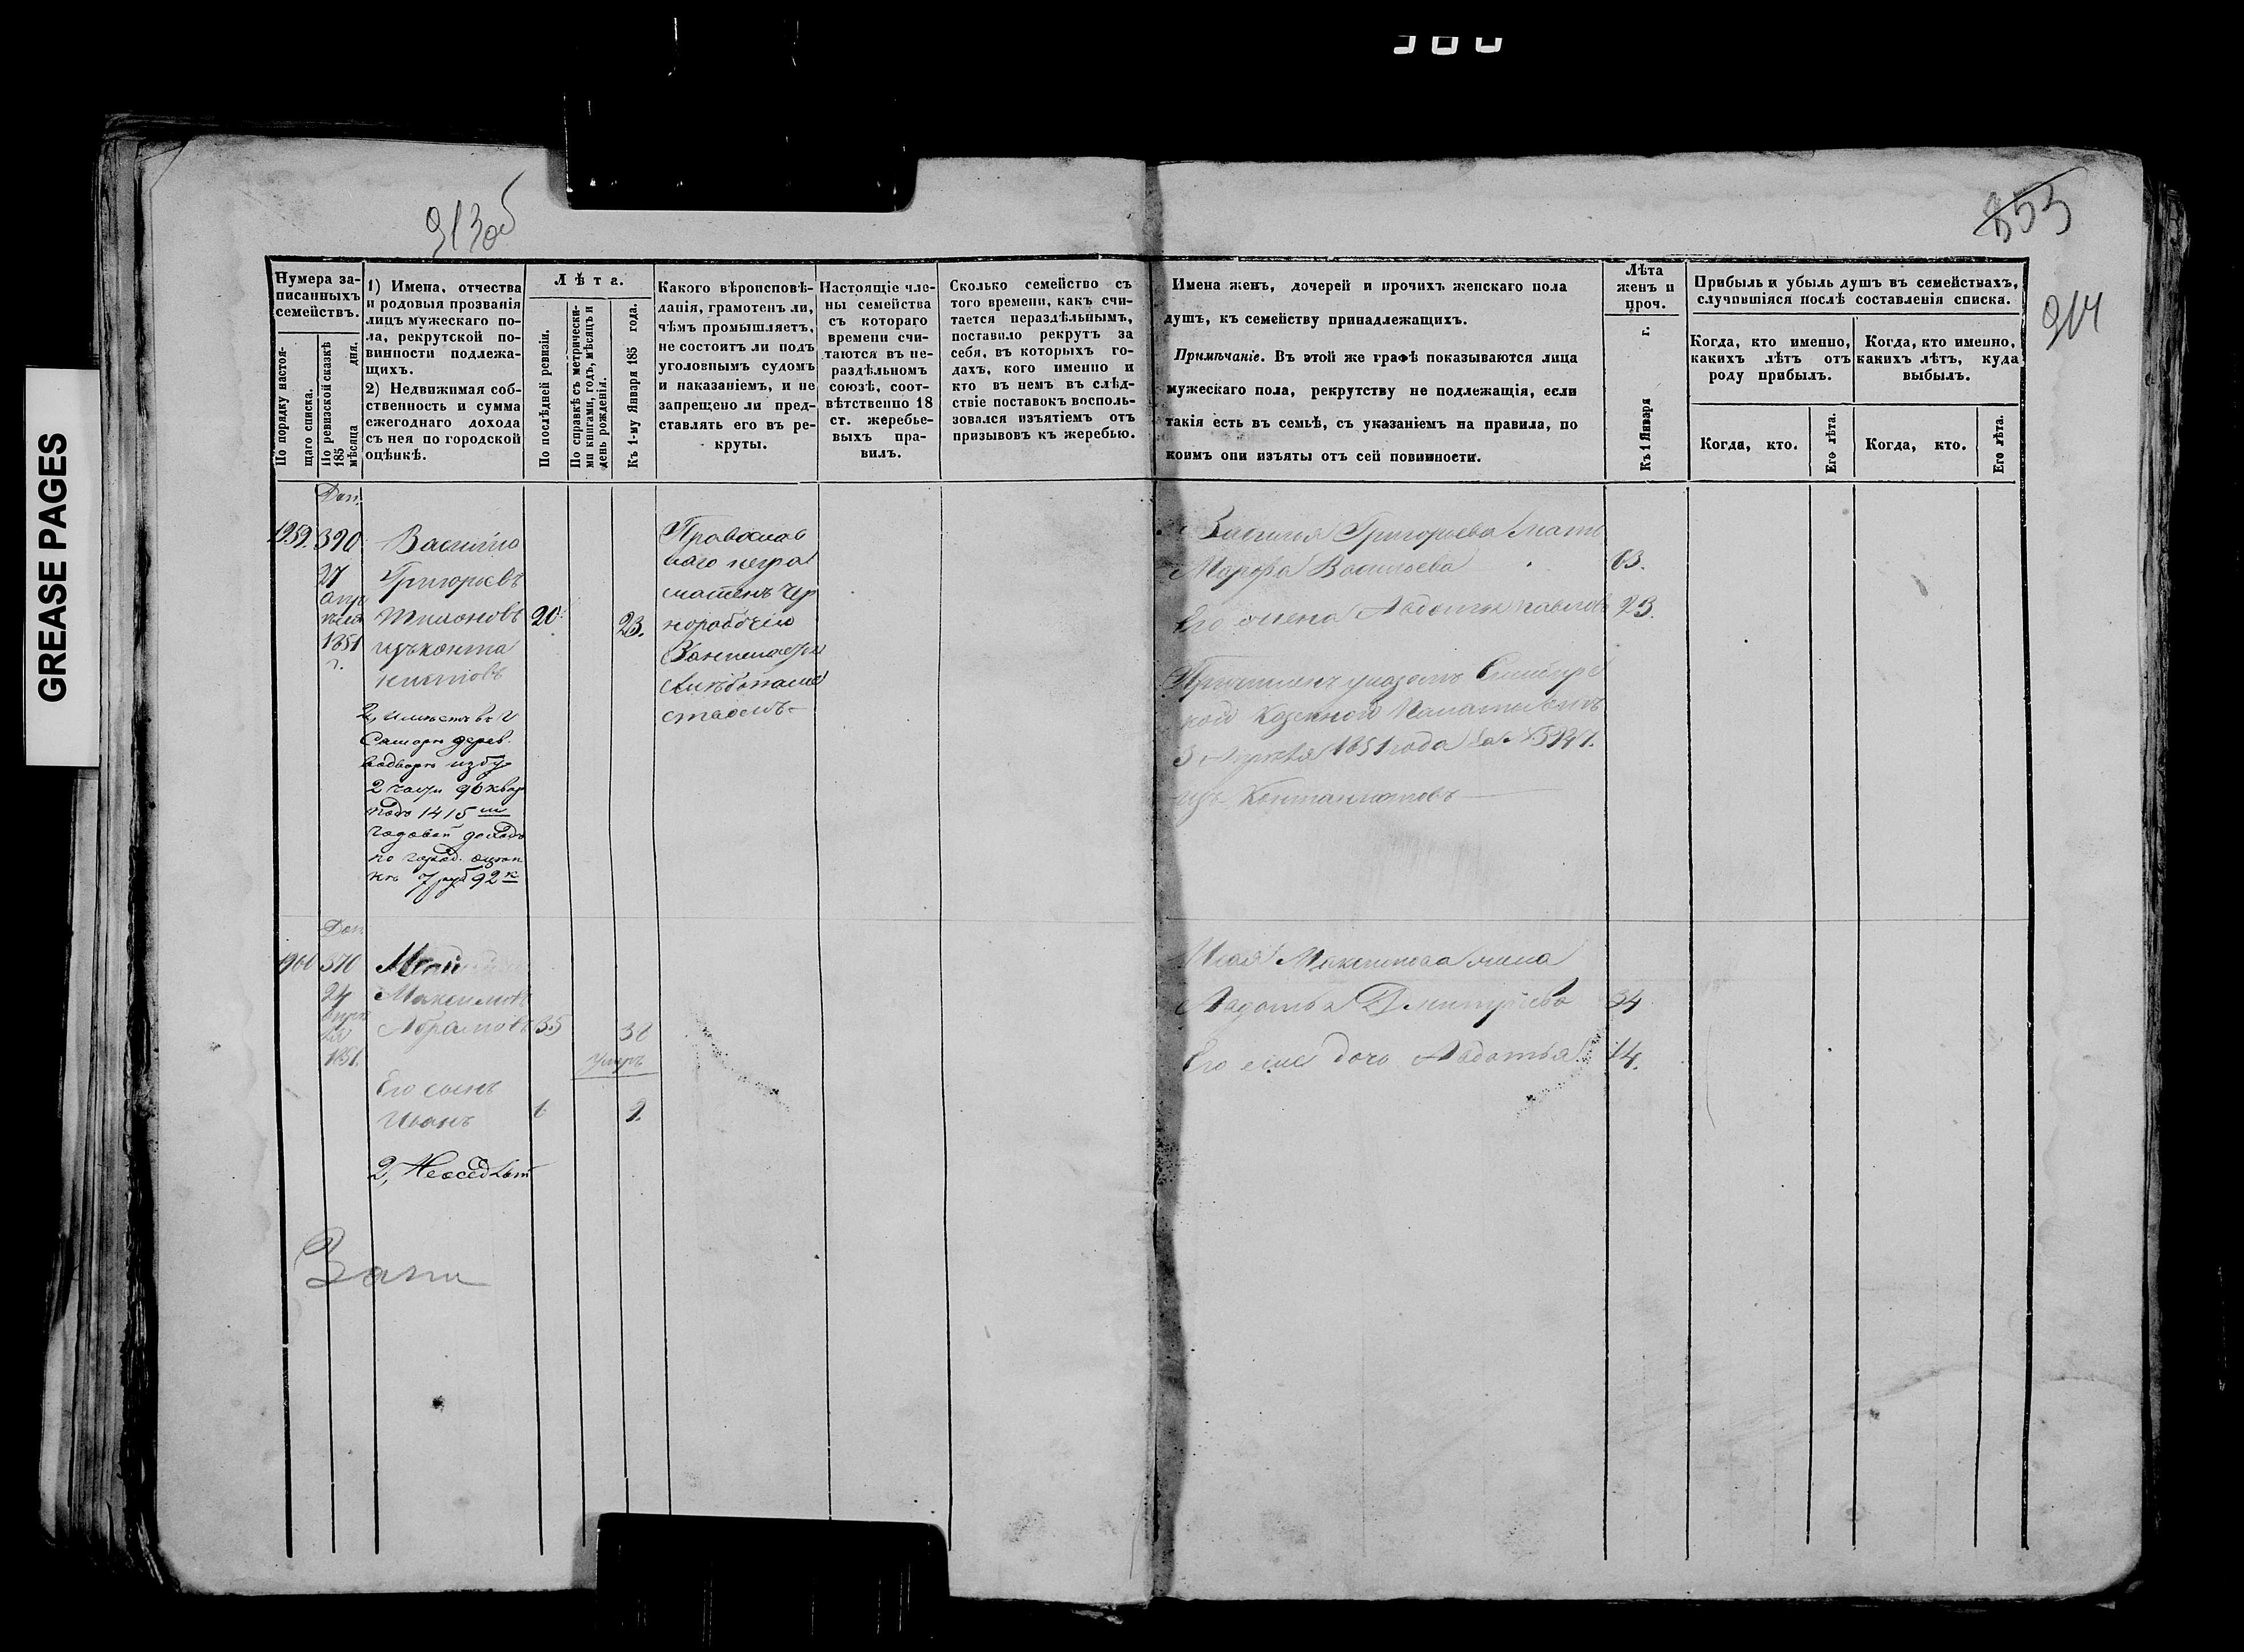 GREASE PAGES
913об
853
914
Нумера за-
писанныхъ
семействъ.
По порядку настоя-
щаго списка.
По ревизской сказкѣ
185 дня.
мѣсяца
1) Имена, отчества
и родовыя прозванія
лицъ мужескаго по-
ла, рекрутской по-
винности подлежа-
щихъ.
2) Недвижимая соб-
ственность и сумма
ежегоднаго дохода
съ нея по городской
оцѣнкѣ.
Лѣта.
По послѣдней ревизіи.
По справкѣ съ метрически-
ми книгами, годъ, мѣсяцъ и
день рожденія.
Къ 1-му Января 185 года.
Какого вѣроисповѣ-
данія, грамотенъ ли,
чѣмъ промышляетъ,
не состоитъ ли подъ
уголовнымъ судомъ
и наказаніемъ, и не
запрещено ли пред-
ставлять его въ ре-
круты.
Настоящіе чле-
ны семейства
съ котораго
времени счи-
таются въ не-
раздѣльномъ
союзѣ, соот-
вѣтственно 18
ст. жеребье-
выхъ пра-
вилъ.
Сколько семейство съ
того времени, какъ счи-
тается нераздѣльнымъ,
поставило рекрутъ за
себя, въ которыхъ го-
дахъ, кого именно и
кто въ немъ въ слѣд-
ствіе поставокъ восполь-
зовался изъятіемъ отъ
призывовъ къ жеребью.
Имена женъ, дочерей и прочихъ женскаго пола
душъ, къ семейству принадлежащихъ.
Примѣчаніе. Въ этой же графѣ показываются лица
мужескаго пола, рекрутству не подлежащія, если
такія есть въ семьѣ, съ указаніемъ на правила, по
коимъ они изъяты отъ сей повинности.
Лѣта
женъ и
проч.
Къ 1 Января г.
Прибыль и убыль душъ въ семействахъ,
случившіяся послѣ составленія списка.
Когда, кто именно,
какихъ лѣтъ отъ
роду прибылъ.
Когда, кто именно,
какихъ лѣтъ, куда
выбылъ.
Когда, кто.
Его лѣта.
Когда, кто.
Его лѣта.
Доп.
1959. 390
Василій
27
Григорьевъ
20 23.
1851
г.
Православ
наго негра
мотенъ чер
норабочій
Занимается
хлѣбопаше
ствомъ
2, имѣетъ въ г
Самарѣ дерев.
избу
2 части 96 квар
подъ 1415
годовой доходъ
по город. оцѣн
кѣ 7 руб 92 к
Василья Григорьева мать
Марфа Васильева 63.
Его жена Авдотья 23.
Причисленъ указомъ Симбир
кой Казенной Палаты отъ
3 Апрѣля 1851 года за №
изъ Кантонистовъ
Доп
1960 370
24 Максимовъ
Абрамовъ 35
1851.
умеръ
Его сынъ
Иванъ 6 9.
2, Неосѣдлый
Максимова жена
Авдотья Дмитріева 34
Его же дочь Авдотья 14.
Запи